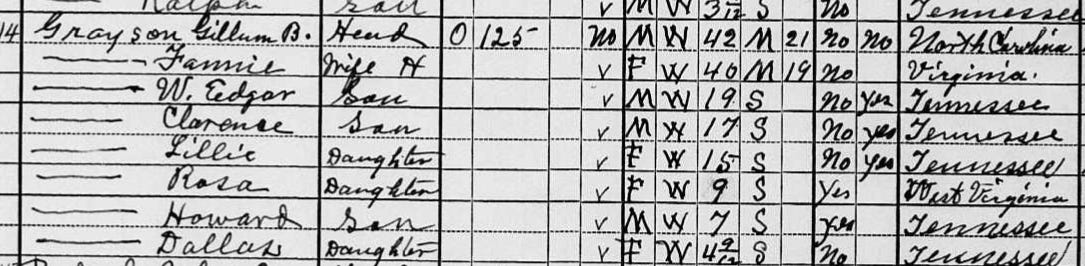 Ralph Son v M W 3 /12 S No Tennessee
14 Grayson Gillum B. Head O 125 No M W 42 M 21 No No North Carolina
—— Fannie Wife H v F W 40 M 19 No Virginia.
—— W. Edgar Son v M W 19 S No Yes Tennessee
—— Clarence Son v M W 17 S No yes Tennessee
—— Lillie Daughter v F W 15 S No yes Tennessee
—— Rosa Daughter v F W 9 S yes West Virginia
—— Howard Son v M W 7 S yes Tennessee
—— Dallas Daughter v F W 4 9/12 S No Tennessee